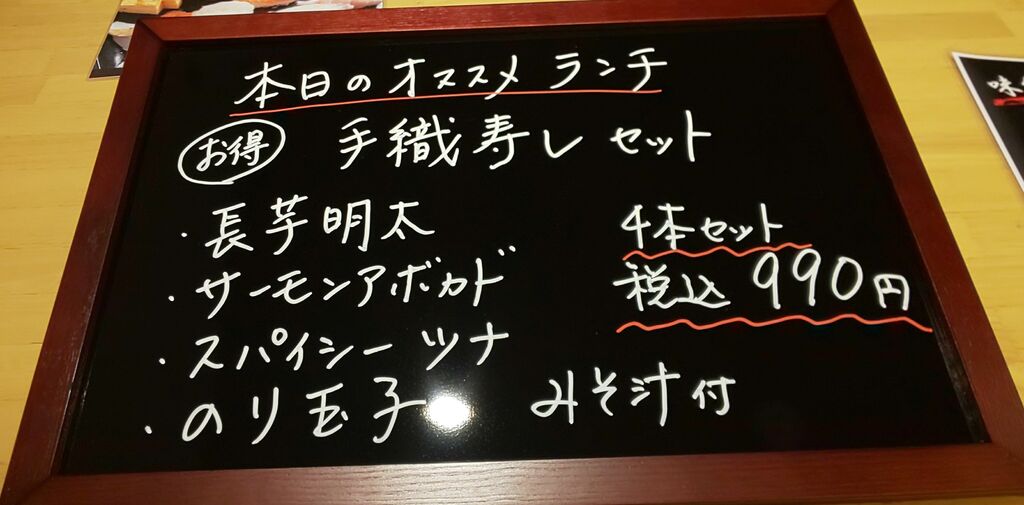 本日のオススメ ランチ
お得 手織寿し セット
・長芋明太
・サーモンアボカド
・スパイシーツナ
・のり玉子
4本セット
税込 990円
みそ汁付
味